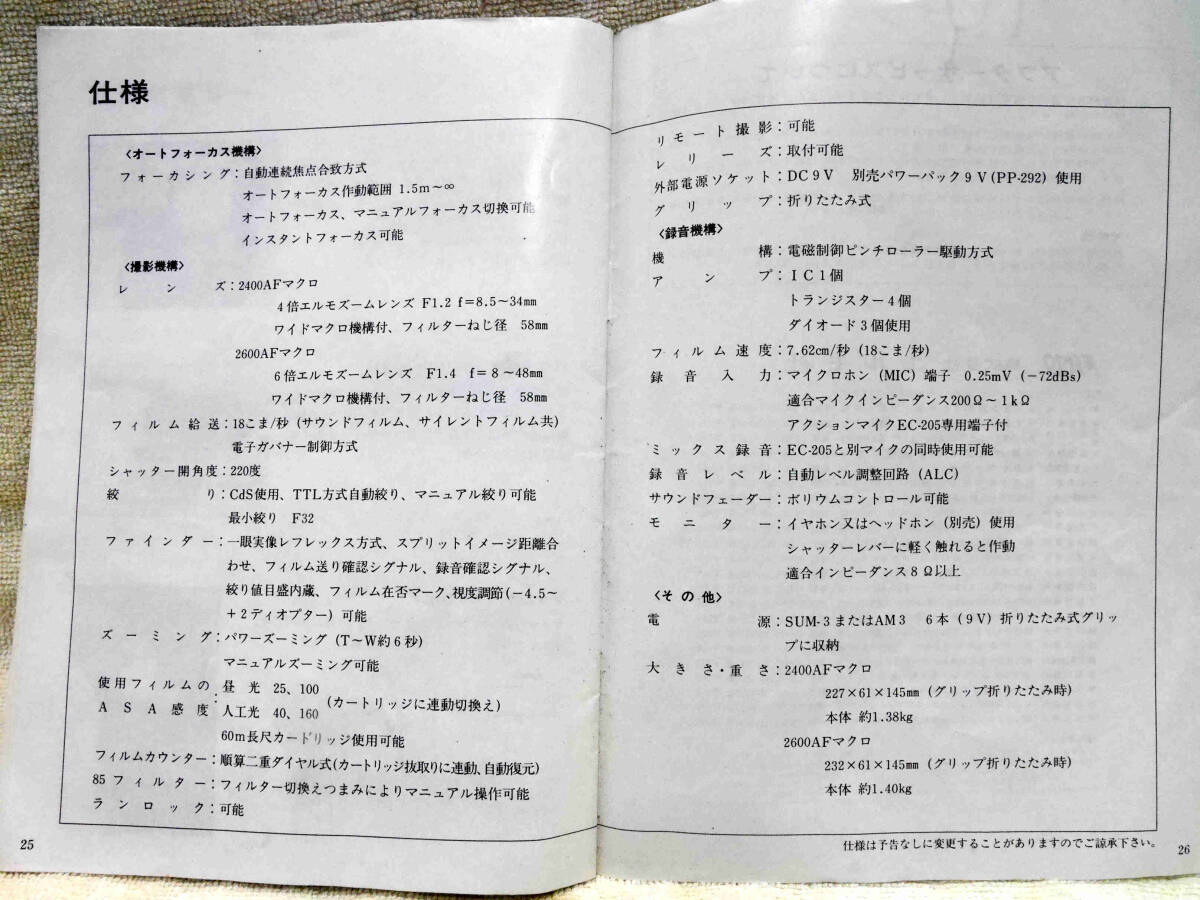 仕様
〈オートフォーカス機構〉
フォーカシング：自動連続焦点合致方式
オートフォーカス作動範囲 1.5m～∞
オートフォーカス、マニュアルフォーカス切換可能
インスタントフォーカス可能
〈撮影機構〉
レンズ：2400AFマクロ
4倍エルモズームレンズ F1.2 f=8.5～34㎜
ワイドマクロ機構付、フィルターねじ径 58㎜
2600AFマクロ
6倍エルモズームレンズ F1.4 f=8～48㎜
ワイドマクロ機構付、フィルターねじ径 58㎜
フィルム給送：18こま/秒（サウンドフィルム、サイレントフィルム共）
電子ガバナー制御方式
シャッター開角度：220度
絞り：CdS使用、TTL方式自動絞り、マニュアル絞り可能
最小絞り F32
ファインダー：一眼実像レフレックス方式、スプリットイメージ距離合
わせ、フィルム送り確認シグナル、録音確認シグナル、
絞り値目盛内蔵、フィルム在否マーク、視度調節（－4.5～
＋2ディオプター）可能
ズーミング：パワーズーミング（T～W約6秒）
マニュアルズーミング可能
使用フィルムの 昼光 25、100
：（カートリッジに連動切換え）
ASA感度 人工光 40、160
60m長尺カードリッジ使用可能
フィルムカウンター：順算二重ダイヤル式（カートリッジ抜取りに連動、自動復元）
85フィルター：フィルター切換えつまみによりマニュアル操作可能
ランロック：可能
25
リモート撮影：可能
レリーズ：取付可能
外部電源ソケット：DC9V 別売パワーパック9V（PP-292）使用
グリップ：折りたたみ式
〈録音機構〉
機構：電磁制御ピンチローラー駆動方式
アンプ：IC1個
トランジスター4個
ダイオード3個使用
フィルム速度：7.62㎝/秒（18こま/秒）
録音入力：マイクロホン（MIC）端子 0.25mV（－72dBs）
適合マイクインピーダンス200Ω～1kΩ
アクションマイクEC-205専用端子付
ミックス録音：EC-205と別マイクの同時使用可能
録音レベル：自動レベル調整回路（ALC）
サウンドフェーダー：ボリウムコントロール可能
モニター：イヤホン又はヘッドホン（別売）使用
シャッターレバーに軽く触れると作動
適合インピーダンス8Ω以上
〈その他〉
電源：SUM-3またはAM3 6本（9V）折りたたみ式グリッ
プに収納
大きさ・重さ：2400AFマクロ
227×61×145㎜（グリップ折りたたみ時）
本体 約1.38㎏
2600AFマクロ
232×61×145㎜（グリップ折りたたみ時）
本体 約1.40㎏
仕様は予告なしに変更することがありますのでご諒承下さい。
26